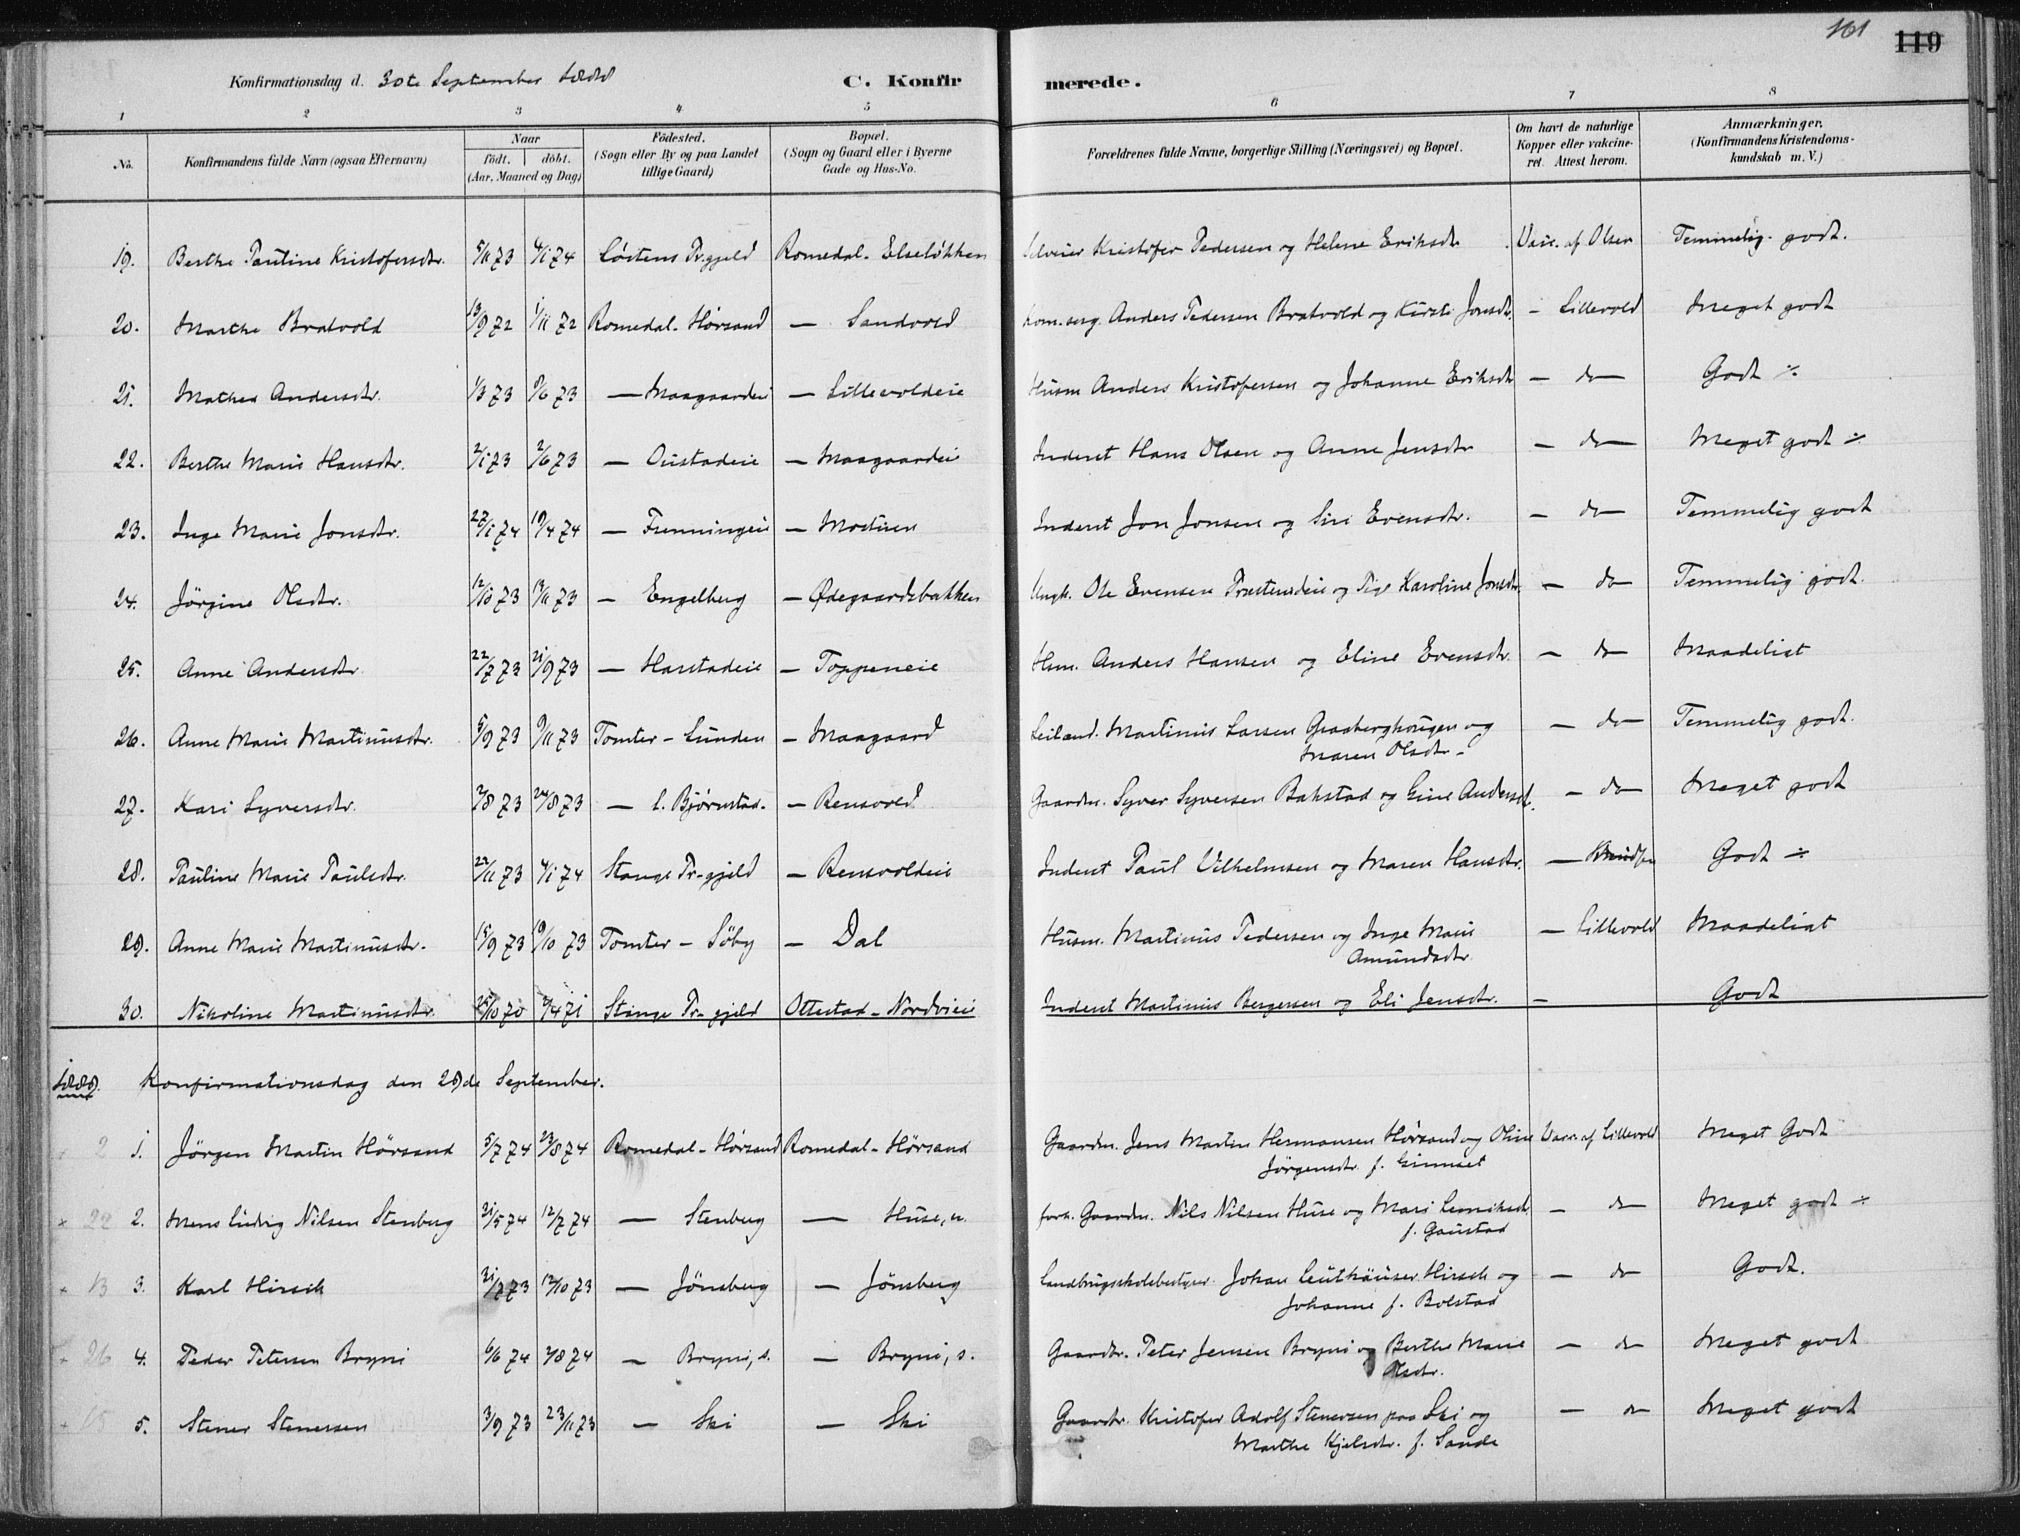 161 119
Konfirmationsdag d. 30te September 1888 C. Konfirmerede.
1 2 3 4 5 6 7 8
No. Konfirmandens fulde Navn (ogsaa Efternavn) Naar født. døbt. (Aar, Maaned og Dag) Fødested. (Sogn eller By og paa Landet tillige Gaard) Bopæl. (Sogn og Gaard eller i Byerne Gade og Hus-No. Forældrenes fulde Navne, borgerlige Stilling (Næringsvei) og Bopæl. Om havt de naturlige Kopper eller vakcineret. Attest herom. Anmærkninger. (Konfirmandens Kristendomskundskab m. V.)
19. Berthe Pauline Kristofersdtr. 5/11 73 4/1 74 Løitens Pr.gjeld Romedal - Elseløkken Selveier Kristofer Pedersen og Helene Eriksdtr. Vacc. af Olsen Temmelig godt.
20. Marthe Bratvold 13/9 72 1/11 72 Romedal - Hørsand — Sandvold Anders Pedersen Bratvold og Kirsti Jonsdtr. - Lillevold Meget godt
21. Mathea Andersdtr. 1/3 73 8/6 73 — Maagaardeie — Lillevoldeie Husm. Anders Kristofersen og Johanne Eriksdtr — do — Godt ÷
22. Berthe Marie Hansdtr. 2/1 73 2/6 73 — Oustadeie — Maagaardeie Inderst Hans Olsen og Anne Jensdtr — do — Meget godt ÷
23. Inge Marie Jonsdtr. 22/1 74 19/4 74 — Frenningeie — Mostuen Inderst Jon Jonsen og Siri Evensdtr. - do — Temmelig godt
24. Jörgine Olsdtr. 12/10 73 13/11 73 — Engelberg — Ødegaardsbakken Ungk. Ole Evensen Præsterudeie og Pige Karoline Jonsdtr. — do Temmelig godt.
25. Anne Andersdtr. 22/7 73 21/9 73 — Harstadeie — Toppeneie Husm. Anders Hansen og Eline Evensdtr. — do Maadeligt
26. Anne Marie Martinusdtr. 5/9 73 9/11 73 Tomter - Lunden — Maagaard Leilænd. Martinus Larsen Graaberghaugen og — do Temmelig godt.
Maren Olsdtr.
27. Kari Syversdtr. 2/8 73 24/8 73 — l. Bjørnstad - — Rensvold Gaardm. Syver Syversen Bakstad og Eine Andersdtr. — do Meget godt
28. Pauline Marie Paulsdtr. 22/11 73 4/1 74 Stange Pr-gjeld — Rensvoldeie Inderst Paul Vilhelmsen og Maren Hansdtr. — Godt ÷
29. Anne Marie Martinusdtr. 15/9 73 19/10 73 Tomter - Söby — Dal Husm. Martinus Pedersen og Inge Marie — Lillevold Maadeligt
Amundsdtr.
30. Nikoline Martinusdtr. 25/10 70 2/4 71 Stange Pr-gjeld Ottestad - Nordvieie Inderst Martinus Bergersen og Eli Jensdtr. — Godt
1889. Konfirmationsdag den 29de September.
2 1. Jörgen Martin Hörsand 5/7 74 23/8 74 Romedal - Hörsand Romedal - Hörsand Gaardm. Jens Martin Hermansen Hörsand og Oline Vacc. af Lillevold Meget Godt
Jörgensdtr. f. Grimset
22 2. Mons Ludvig Nilsen Stenberg 21/5 74 12/7 74 — Stenberg — Huse, n. forh. Gaardm. Nils Nilsen Huse og Mari — do Meget godt ÷
f. Gaustad
13 3. Karl Hirsch 21/7 73 12/10 73 — Jönsberg — Jönsberg Landbrugsskolebestyrer Johan Leuthäuser Hirsch og — do Godt.
Johanne f. Bolstad
26 4. Peder Petersen Bryni 6/6 74 2/8 74 — Bryni, s. — Bryni, s. Gaardbr. Peter Jensen Bryni og Berthe Marie — do Meget godt
Olsdtr.
65 5. Stener Stenersen 3/9 73 23/11 73 — Ski — Ski Gaardbr. Kristofer Adolf Stenersen paa Ski og — do Meget godt
Marthe Kjelsdtr. f. Sande